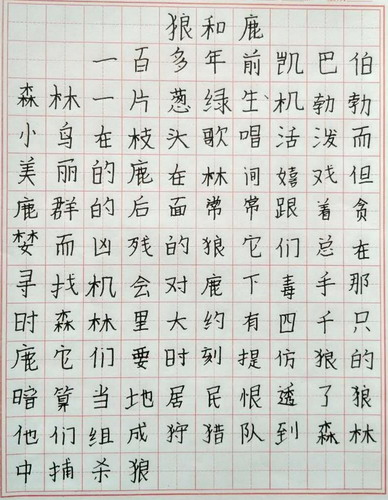 狼和鹿
一百多年前凯巴伯
森林一片葱绿生机勃勃
小鸟在枝头歌唱活泼而
美丽的鹿在林间嬉戏但
鹿群的后面常常跟着贪
婪而凶残的狼它们总在
寻找机会对鹿下毒手那
时森林里大约有四千只
鹿它们要时刻提仿狼的
暗算当地居民恨透了狼
他们组成狩猎队到森林
中捕杀狼